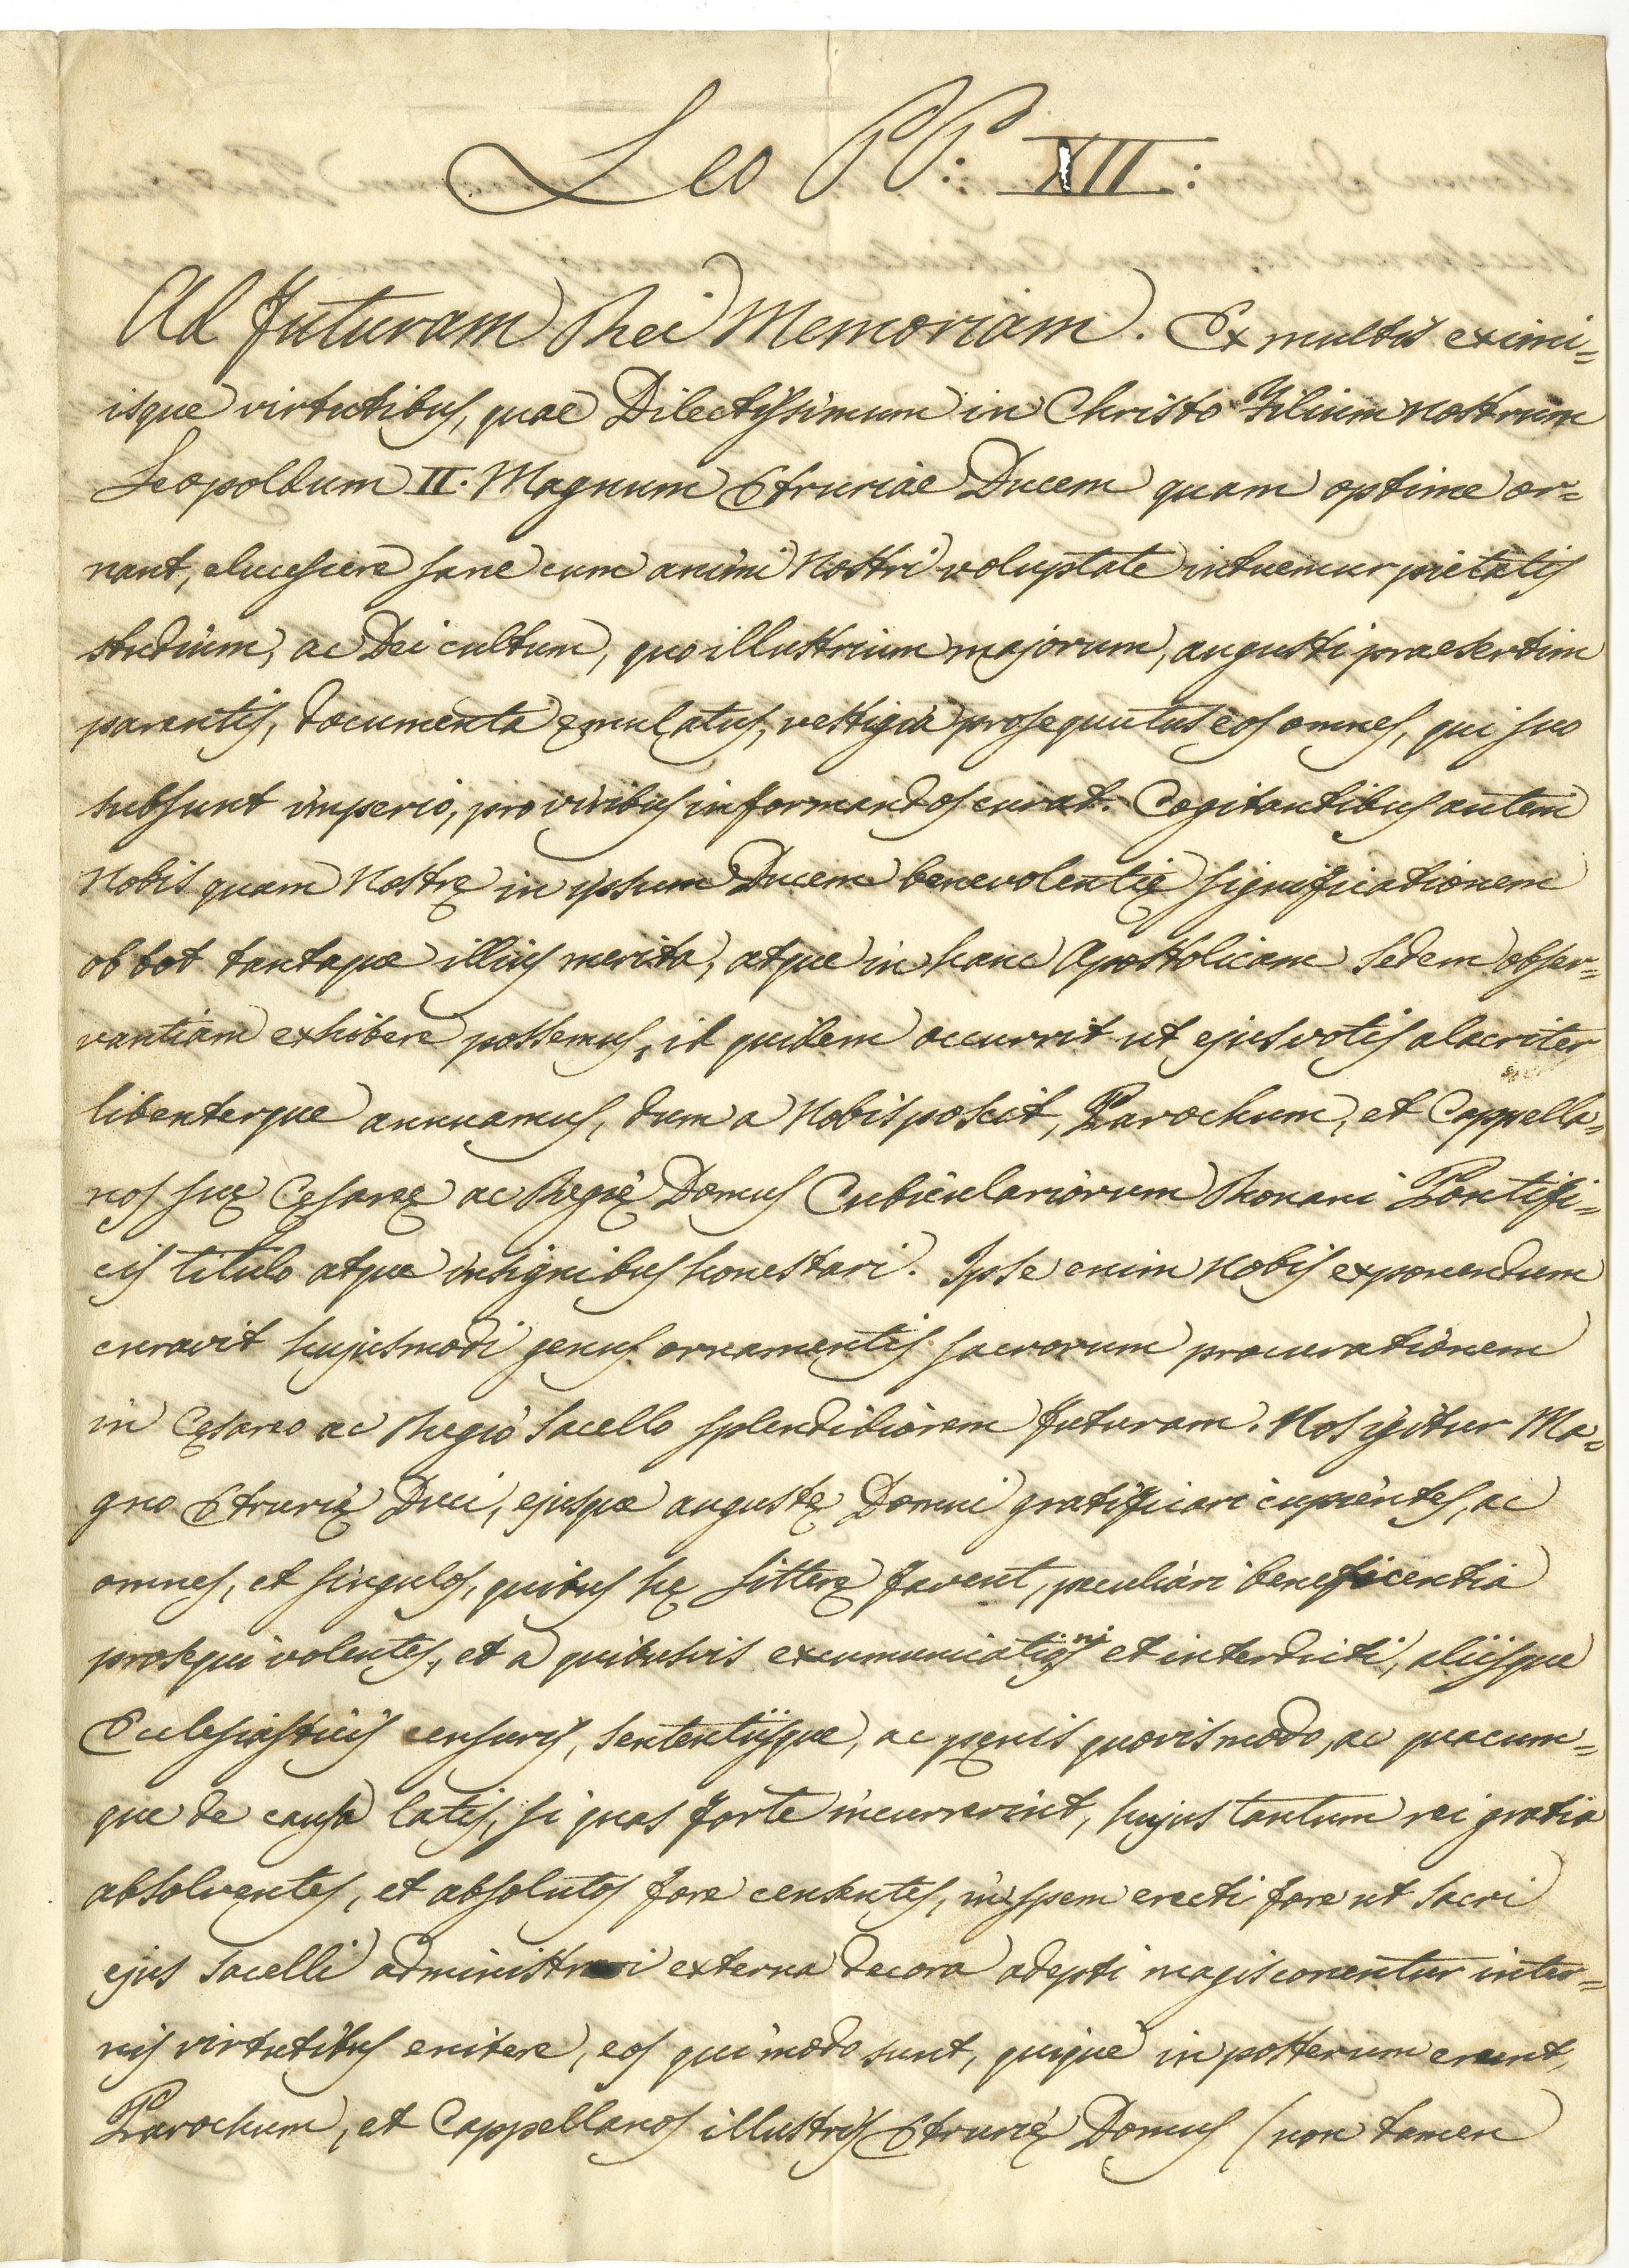 Leo PP: XII:
Ad Futuram Rei Memoriam. Ex multis eximi=
isque virtutibus, quae Dilectissimum in Christo Filium Nostrum
Leopoldum II. Magnum Etruriae Ducem quam optime or=
nant, elucescere sane cum animi Nostri voluptate intuemur pietatis
studium, ac Dei cultum, quo illustrium majorum, augusti praesertim
parentis, documenta ęmulatus, vestigia prosequutus eos omnes, qui suo
subsunt imperio, pro viribus informandos curat. Cogitantibus autem
Nobis quam Nostrę in ipsum Ducem benevolentię significationem
ob tot tantaque illius merita, atque in hanc Apostolicam Sedem obser=
vantiam exhibere possemus, id quidem occurrit ut ejus votis alacriter
libenterque annuamus, dum a Nobis poscit, Parochum, et Cappella=
nos suę Cęsareę ac Regię Domus Cubiculariorum Romani Pontifi=
cis titulo atque insignibus honestari. Ipse enim Nobis exponendum
curavit hujusmodi genus ornamentis sacrorum procurationem
in Cęsareo ac Regio Sacello splendidiorem futuram. Nos igitur Ma=
gno Etrurię Duci, ejusque augustę Domui gratificari cupientes, ac
omnes, et singulos, quibus hę Litterę favent, peculiari beneficentia
prosequi volentes, et a quibusvis excumunicationis et interdicti, aliisque
Ecclesiasticis censuris, sententiisque, ac pęnis quovismodo, ac quacum=
que de causa latis, si quas forte incurrerint, hujus tantum rei gratia
absolventes, et absolutos fore censentes, in spem erecti fore ut Sacri
ejus Sacelli administri externa decora adepti magis conentur inter=
nis virtutibus enitere, eos qui modo sunt, quique in posterum erunt,
Parochum, et Cappellanos illustris Etrurię Domus (non tamen